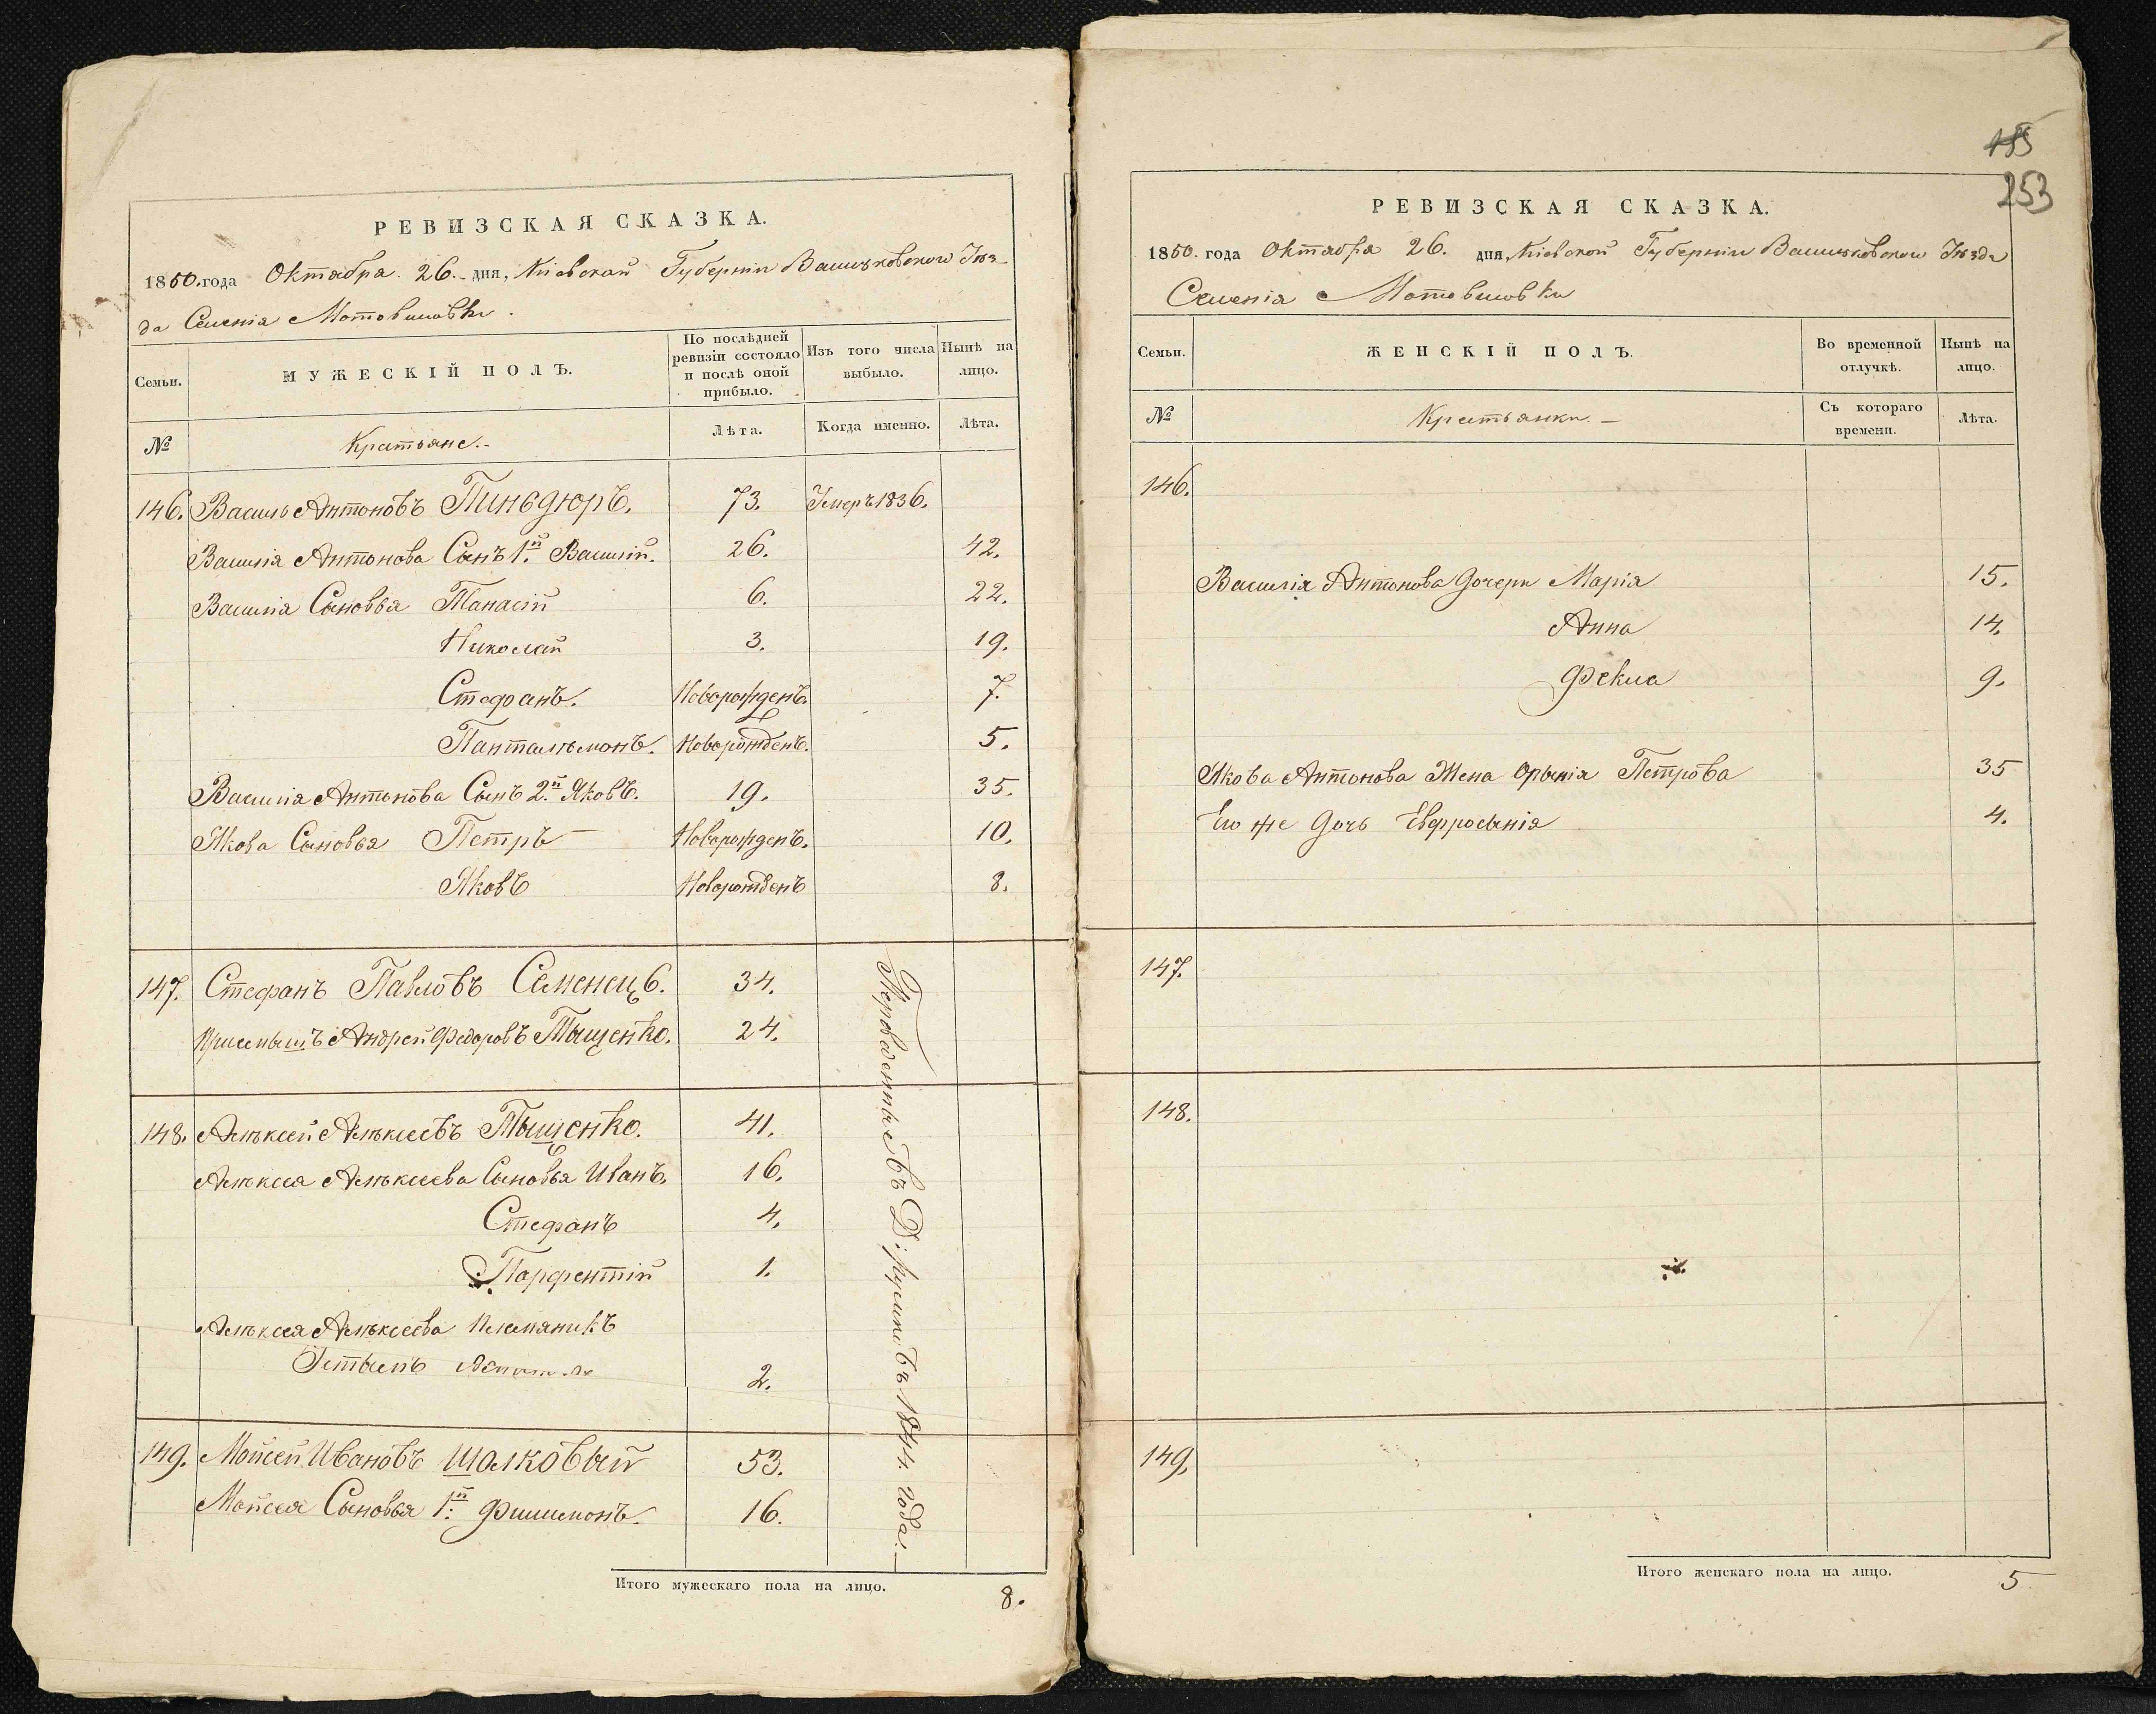 РЕВИЗСКАЯ СКАЗКА.
1850. года Октября 26. дня, Кіевской Губерніи Васильковского Уез-
да Селенія Мотовиловки.
Семьи.
МУЖЕСКІЙ ПОЛЪ.
По послѣдней ревизіи состояло и послѣ оной прибыло.
Изъ того числа выбыло.
Нынѣ на лицо.
№
Крестьяне.
Лѣта.
Когда именно.
Лѣта.
146. Василь Антоновъ Пиньдюръ. 73. Умеръ 1836.
Василія Антонова Сынъ 1й Василій. 26. 42.
Василія Сыновья Танасій 6. 22.
Николай 3. 19.
Стефанъ. Новорожденъ. 7.
Панталѣмонъ. Новорожденъ. 5.
Василія Антонова Сынъ 2.й Яковъ. 19. 35.
Якова Сыновья Петръ Новорожденъ. 10.
Яковъ Новорожденъ 8.
147. Стефанъ Павловъ Семенецъ. 34.
Приемышъ Андрей Федоровъ Тыщенко. 24.
148. Алѣксей Алѣксеевъ Тыщенко. 41.
Алѣксея Алѣксеева Сыновья Иванъ. 16.
Стефанъ 4.
Парфентій 1.
Алѣксея Алѣксеева племяникъ
Устымъ 2.
149. Мойсей Ивановъ Шолковый 53.
Мойсея Сыновья 1й Филимонъ. 16.
въ 1844. года.
Итого мужескаго пола на лицо. 8.
185
253
РЕВИЗСКАЯ СКАЗКА.
1850. года Октября 26. дня, Кіевской Губерніи Васильковского Уезда
Селенія Мотовиловки
Семьи.
ЖЕНСКІЙ ПОЛЪ.
Во временной отлучкѣ.
Нынѣ на лицо.
№
Крестьянки.
Съ котораго времени.
Лѣта.
146.
Василія Антонова дочери Марія 15.
Анна 14.
Фекла 9.
Якова Антонова Жена Орынія Петрова 35
Его же дочь Евфросынія 4.
147.
148.
149.
Итого женскаго пола на лицо. 5